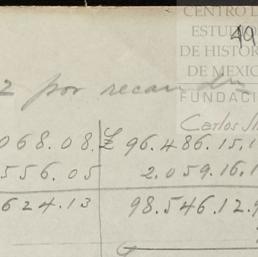 CENTRO D
ESTUDI
DE HISTOR
DE MEXIC
FUNDACI
Carlos Sl
49
2 por recau
068.08. £ 96.486.15.1
556.05 2.059.16.1
624.13 98.546.12.9